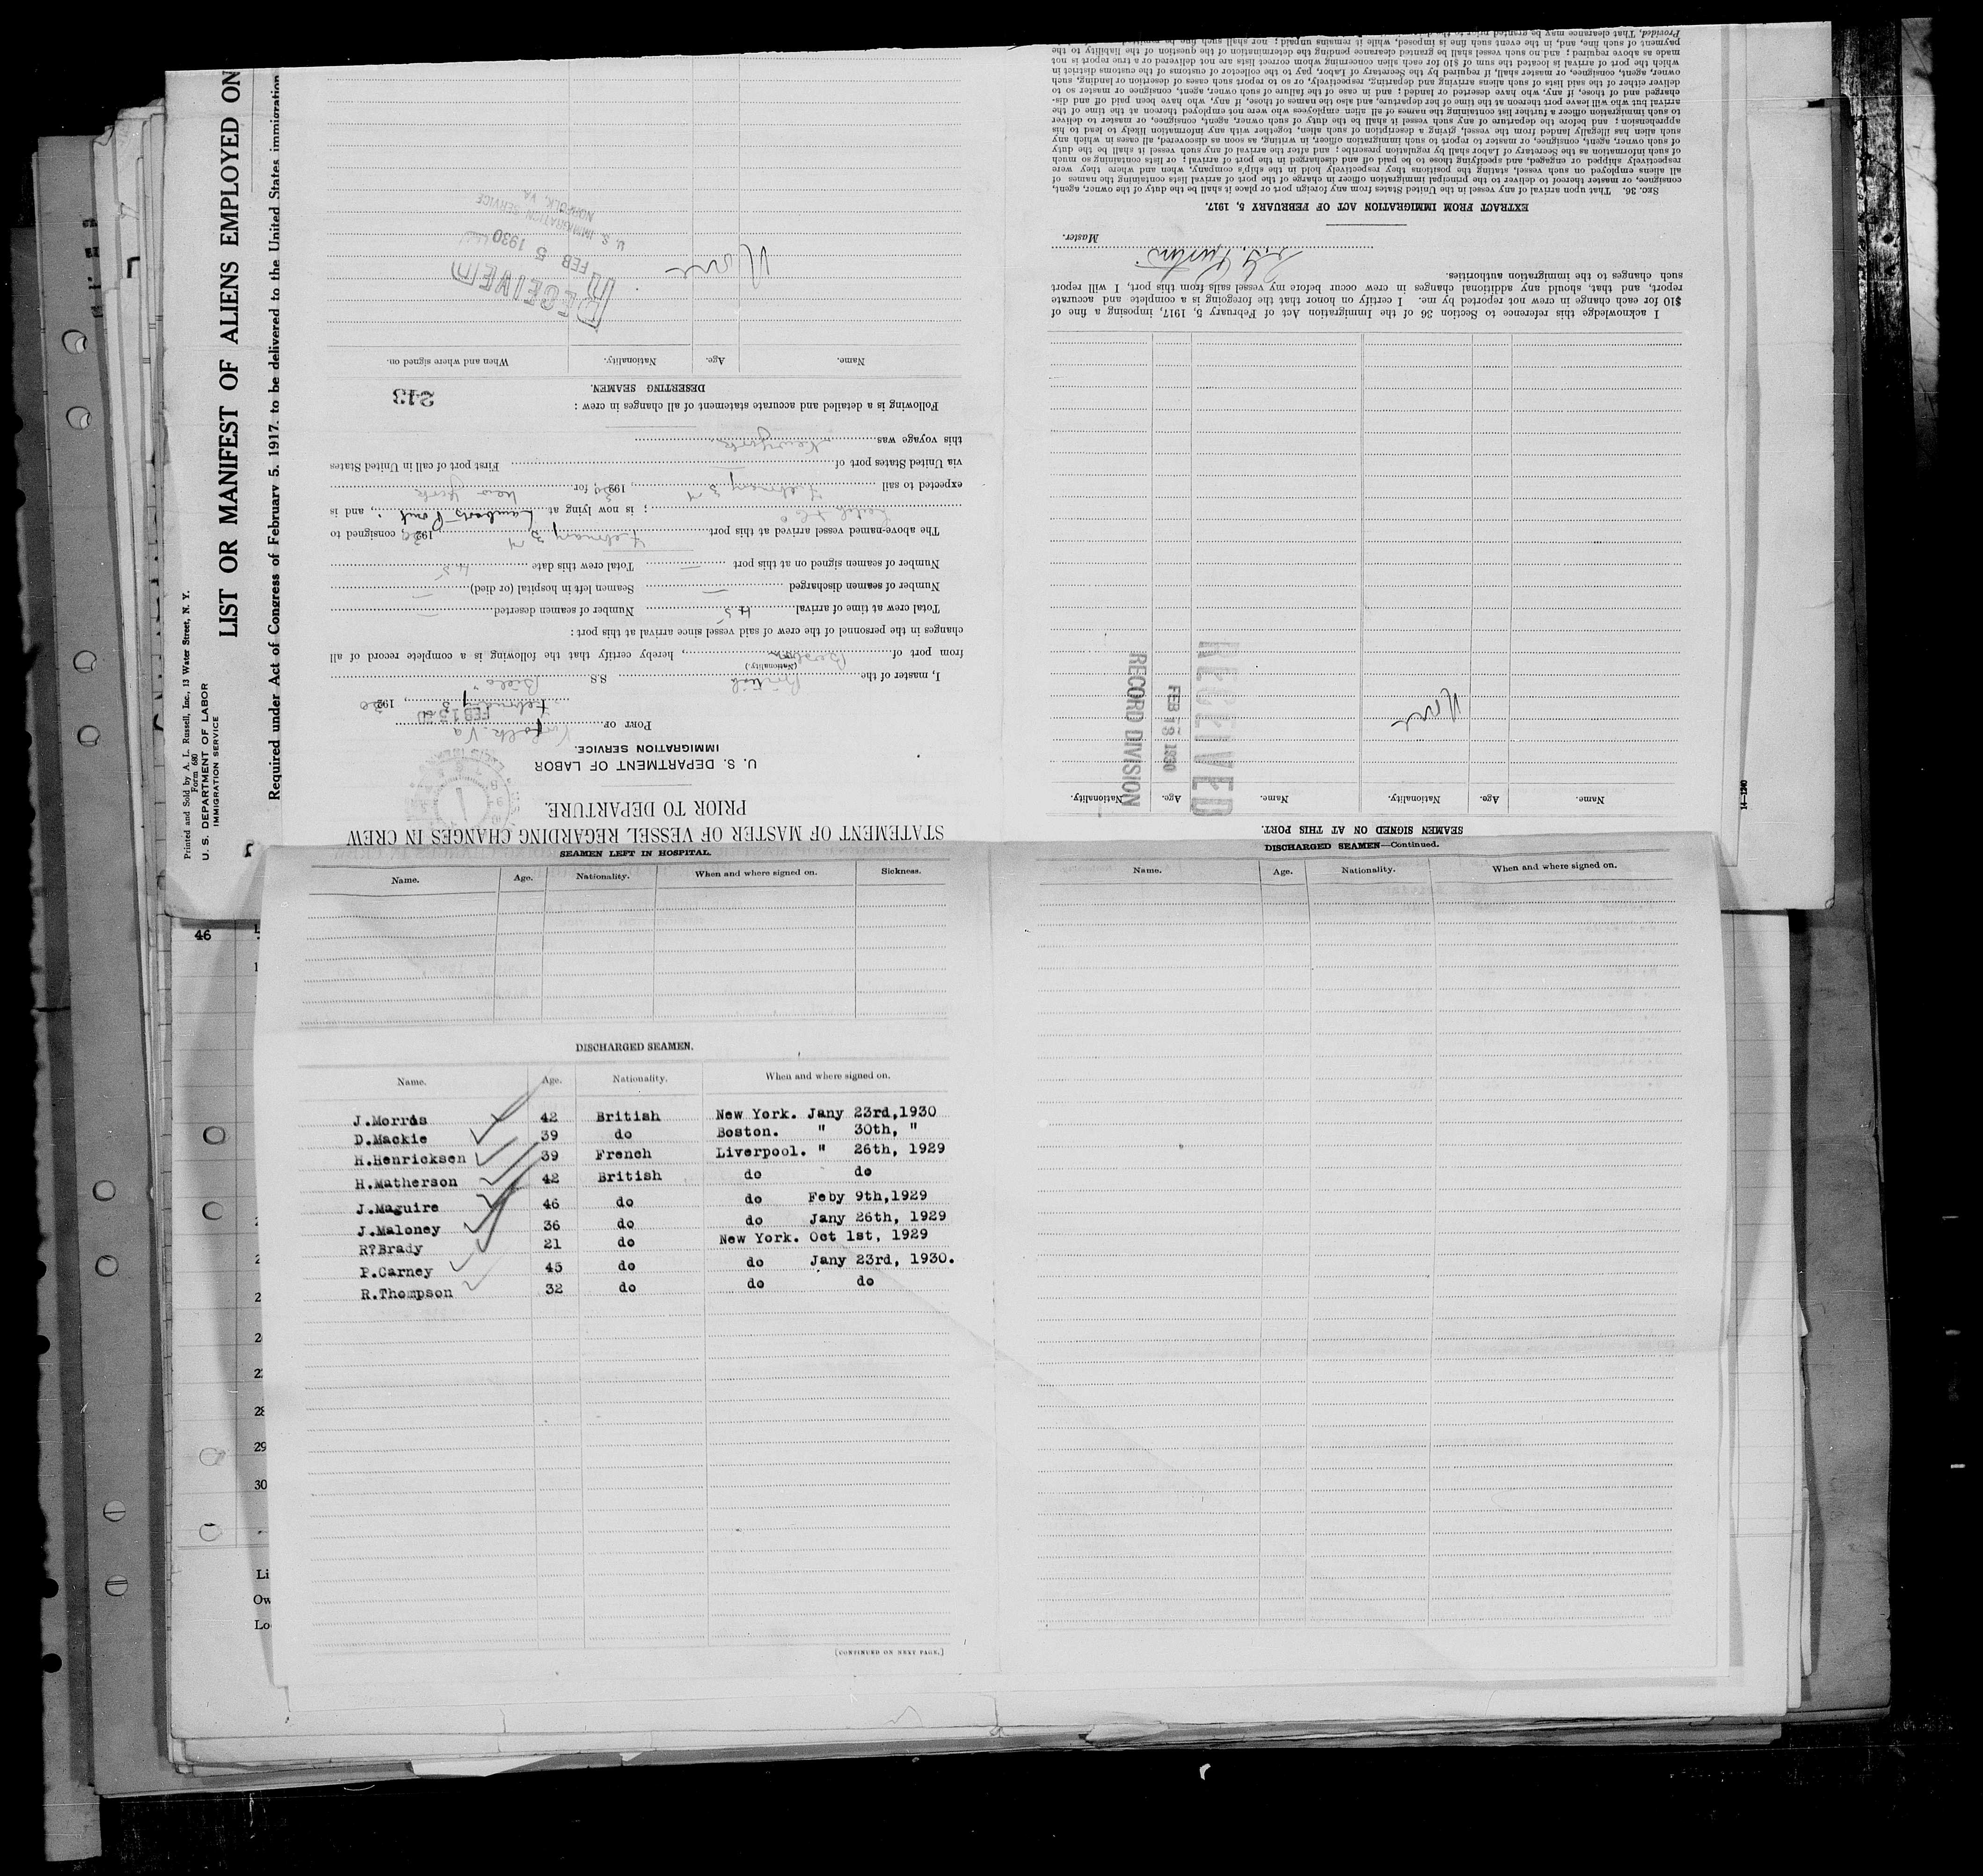 LIST OR MANIFEST OF ALIENS EMPLOYED ON
Required under Act of Congress of February 5, 1917, to be delivered to the United States immigration
Printed and Sold by A. L. Russell, Inc., 13 Water Street, N. Y.
Form 680
U. S. DEPARTMENT OF LABOR
IMMIGRATION SERVICE
STATEMENT OF MASTER OF VESSEL REGARDING CHANGES IN CREW
PRIOR TO DEPARTURE.
U. S. DEPARTMENT OF LABOR
IMMIGRATION SERVICE.
PORT OF Norfolk Va
February 3, 1930
FEB 13
I, master of the British S.S.
(Nationality.)
from port of Boston, hereby certify that the following is a complete record of all
changes in the personnel of the crew of said vessel since arrival at this port:
Total crew at time of arrival 45 Number of seamen deserted —
Number of seamen discharged — Seamen left in hospital (or died) —
Number of seamen signed on at this port — Total crew this date 45
The above-named vessel arrived at this port February 2, 1930, consigned to
; is now lying at Lamberts Point, and is
expected to sail February 3, 1930, for New York
via United States port of — First port of call in United States
this voyage was New York
Following is a detailed and accurate statement of all changes in crew:
243
DESERTING SEAMEN.
Name. Age. Nationality. When and where signed on.
None
RECEIVED
FEB 5 1930
U. S. IMMIGRATION SERVICE
NORFOLK, VA
SEAMEN SIGNED ON AT THIS PORT.
Name. Age. Nationality. Name. Age. Nationality.
None
RECEIVED
FEB 13 1930
RECORD DIVISION
14—1240
I acknowledge this reference to Section 36 of the Immigration Act of February 5, 1917, imposing a fine of
$10 for each change in crew not reported by me. I certify on honor that the foregoing is a complete and accurate
report, and that, should any additional changes in crew occur before my vessel sails from this port, I will report
such changes to the immigration authorities.
Master.
EXTRACT FROM IMMIGRATION ACT OF FEBRUARY 5, 1917.
SEC. 36. That upon arrival of any vessel in the United States from any foreign port or place it shall be the duty of the owner, agent,
consignee, or master thereof to deliver to the principal immigration officer in charge of the port of arrival lists containing the names of
all aliens employed on such vessel, stating the positions they respectively hold in the ship's company, when and where they were
respectively shipped or engaged, and specifying those to be paid off and discharged in the port of arrival; or lists containing so much
of such information as the Secretary of Labor shall by regulation prescribe; and after the arrival of any such vessel it shall be the duty
of such owner, agent, consignee, or master to report to such immigration officer, in writing, as soon as discovered, all cases in which any
such alien has illegally landed from the vessel, giving a description of such alien, together with any information likely to lead to his
apprehension; and before the departure of any such vessel it shall be the duty of such owner, agent, consignee, or master to deliver
to such immigration officer a further list containing the names of all alien employees who were not employed thereon at the time of the
arrival but who will leave port thereon at the time of her departure, and also the names of those, if any, who have been paid off and dis-
charged and of those, if any, who have deserted or landed; and in case of the failure of such owner, agent, consignee or master so to
deliver either of the said lists of such aliens arriving and departing, respectively, or so to report such cases of desertion or landing, such
owner, agent, consignee, or master, shall, if required by the Secretary of Labor, pay to the collector of customs of the customs district in
which the port of arrival is located the sum of $10 for each alien concerning whom correct lists are not delivered or a true report is not
made as above required; and no such vessel shall be granted clearance pending the determination of the question of the liability to the
payment of such fine, and, in the event such fine is imposed, while it remains unpaid; nor shall such fine be
Provided, That clearance may be granted prior to
SEAMEN LEFT IN HOSPITAL.
Name. Age. Nationality. When and where signed on. Sickness.
DISCHARGED SEAMEN.
Name. Age. Nationality. When and where signed on.
J.Morris 42 British New York. Jany 23rd,1930
D.Mackie 39 do Boston. " 30th, "
H.Henricksen 39 French Liverpool. " 26th, 1929
H.Matherson 42 British do do
J.Maguire 46 do do Feby 9th,1929
J.Maloney 36 do do Jany 26th, 1929
R?Brady 21 do New York. Oct 1st, 1929
P.Carney 45 do do Jany 23rd, 1930.
R.Thompson 32 do do do
[CONTINUED ON NEXT PAGE.]
DISCHARGED SEAMEN—Continued.
Name. Age. Nationality. When and where signed on.
46
28
29
30
Li
Ow
Lo